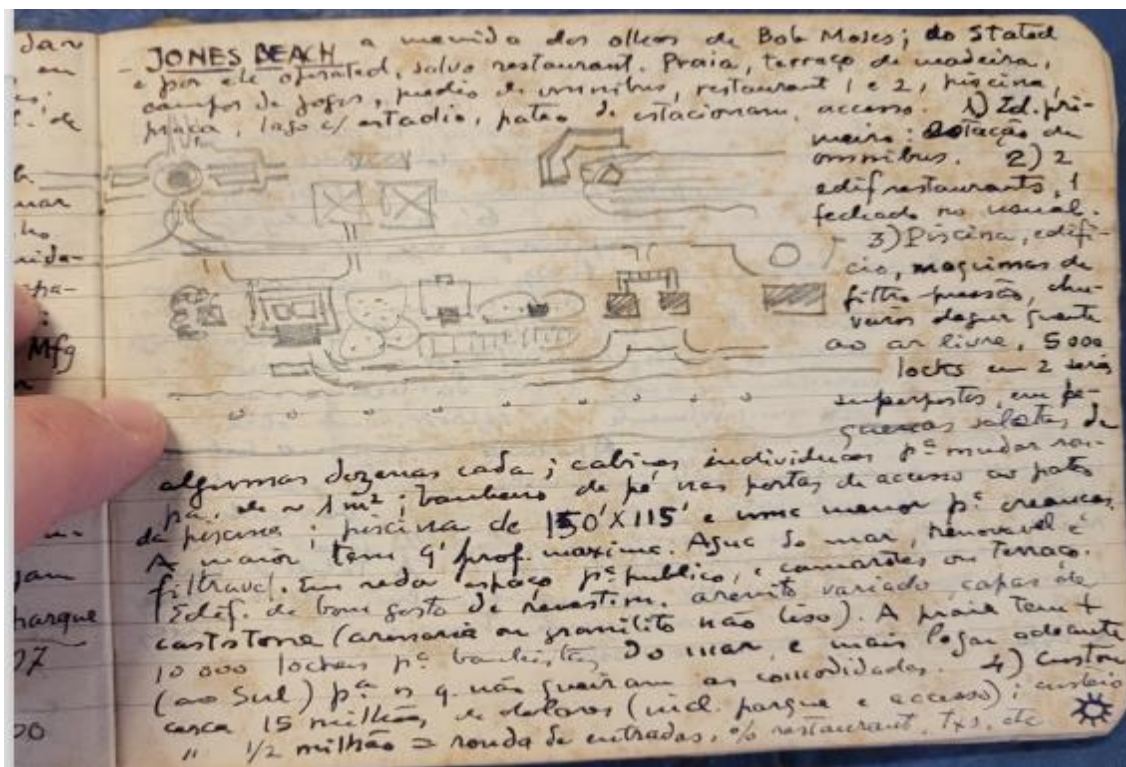 dar
em
de
nar
ho
nida-
spa-
Mfg
jam
parque
07
00
JONES BEACH a menida dos olhos de Bob Moses; do Stated
e por ele operated, salvo restaurant. Praia, terraço de madeira,
campos de jogos, predio de omnibus, restaurant 1 e 2, piscina,
praça, lago c/ estadio, pateo de estacionam. accesso. 1) Ed. pri-
meiro: estação de
omnibus. 2) 2
edif restaurants, 1
fechado no usual.
3) Piscina, edifi-
cio, maquinas de
filtro-pressão, chu-
veiros dagua quente
ao ar livre, 5000
locks em 2 series
superpostos, em pe-
quenas salotas de
algumas dezenas cada; cabines individuaes pª mudar rou-
pa, de ~ 1 m²; banheiro de pé nas portas de accesso ao pateo
da piscina; piscina de 150' X 115' e uma menor pª creanças.
A maior tem 9' prof. maxima. Agua do mar, renovavel e
filtravel. Em redor espaço pª publico, e camarotes ou terraço.
Edif. de bom gosto de revestim. arenito variado, capas de
caststone (arenaria ou granilito não liso). A praia tem +
10 000 lockers pª banhistas do mar, e mais logar adeante
(ao Sul) pª os q. não queiram as comodidades. 4) Custou
cerca 15 milhões de dolares (incl. parque e accesso); custeio
" 1/2 milhão = renda de entradas, % restaurant, txs, etc